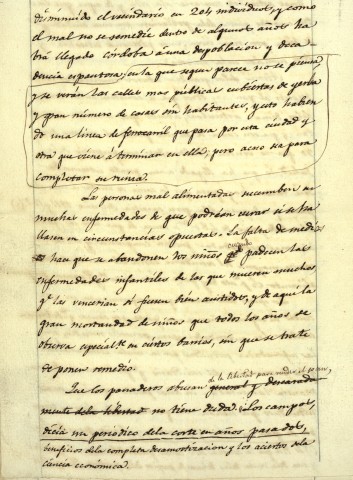 disminuido el vecindario en 204 individuos, y como
el mal no se remedie dentro de algunos años ha-
brá llegado Córdoba á una despoblacion y deca-
dencia espantosa, en la que segun parece no se piensa
y se verán las calles mas publicas cubiertas de yerba
y gran número de casas sin habitantes, y esto habien-
do una linea de ferrocarril que pasa por esta ciudad y
otra que viene á terminar en ella, pero acaso sea para
completar su ruina.
Las personas mal alimentadas sucumben á
muchas enfermedades de que podrían curar si se ha-
llasen en circunstancias opuestas. La falta de medios
hace que se abandonen los niños cuando padecen las
enfermedades infantiles de las que mueren muchos
qe. las vencerian si fuesen bien asistidos, y de aquí la
gran mortandad de niños que todos los años se
observa especialmte. en ciertos barrios, sin que se trate
de poner remedio.
de la libertad para
Que los panaderos abusan general y descarada-
mente de la libertad no tiene duda. "Los campos,
decia un periodico de la corte en años pasados,
beneficios de la completa desamortizacion y los aciertos de la
ciencia económica.